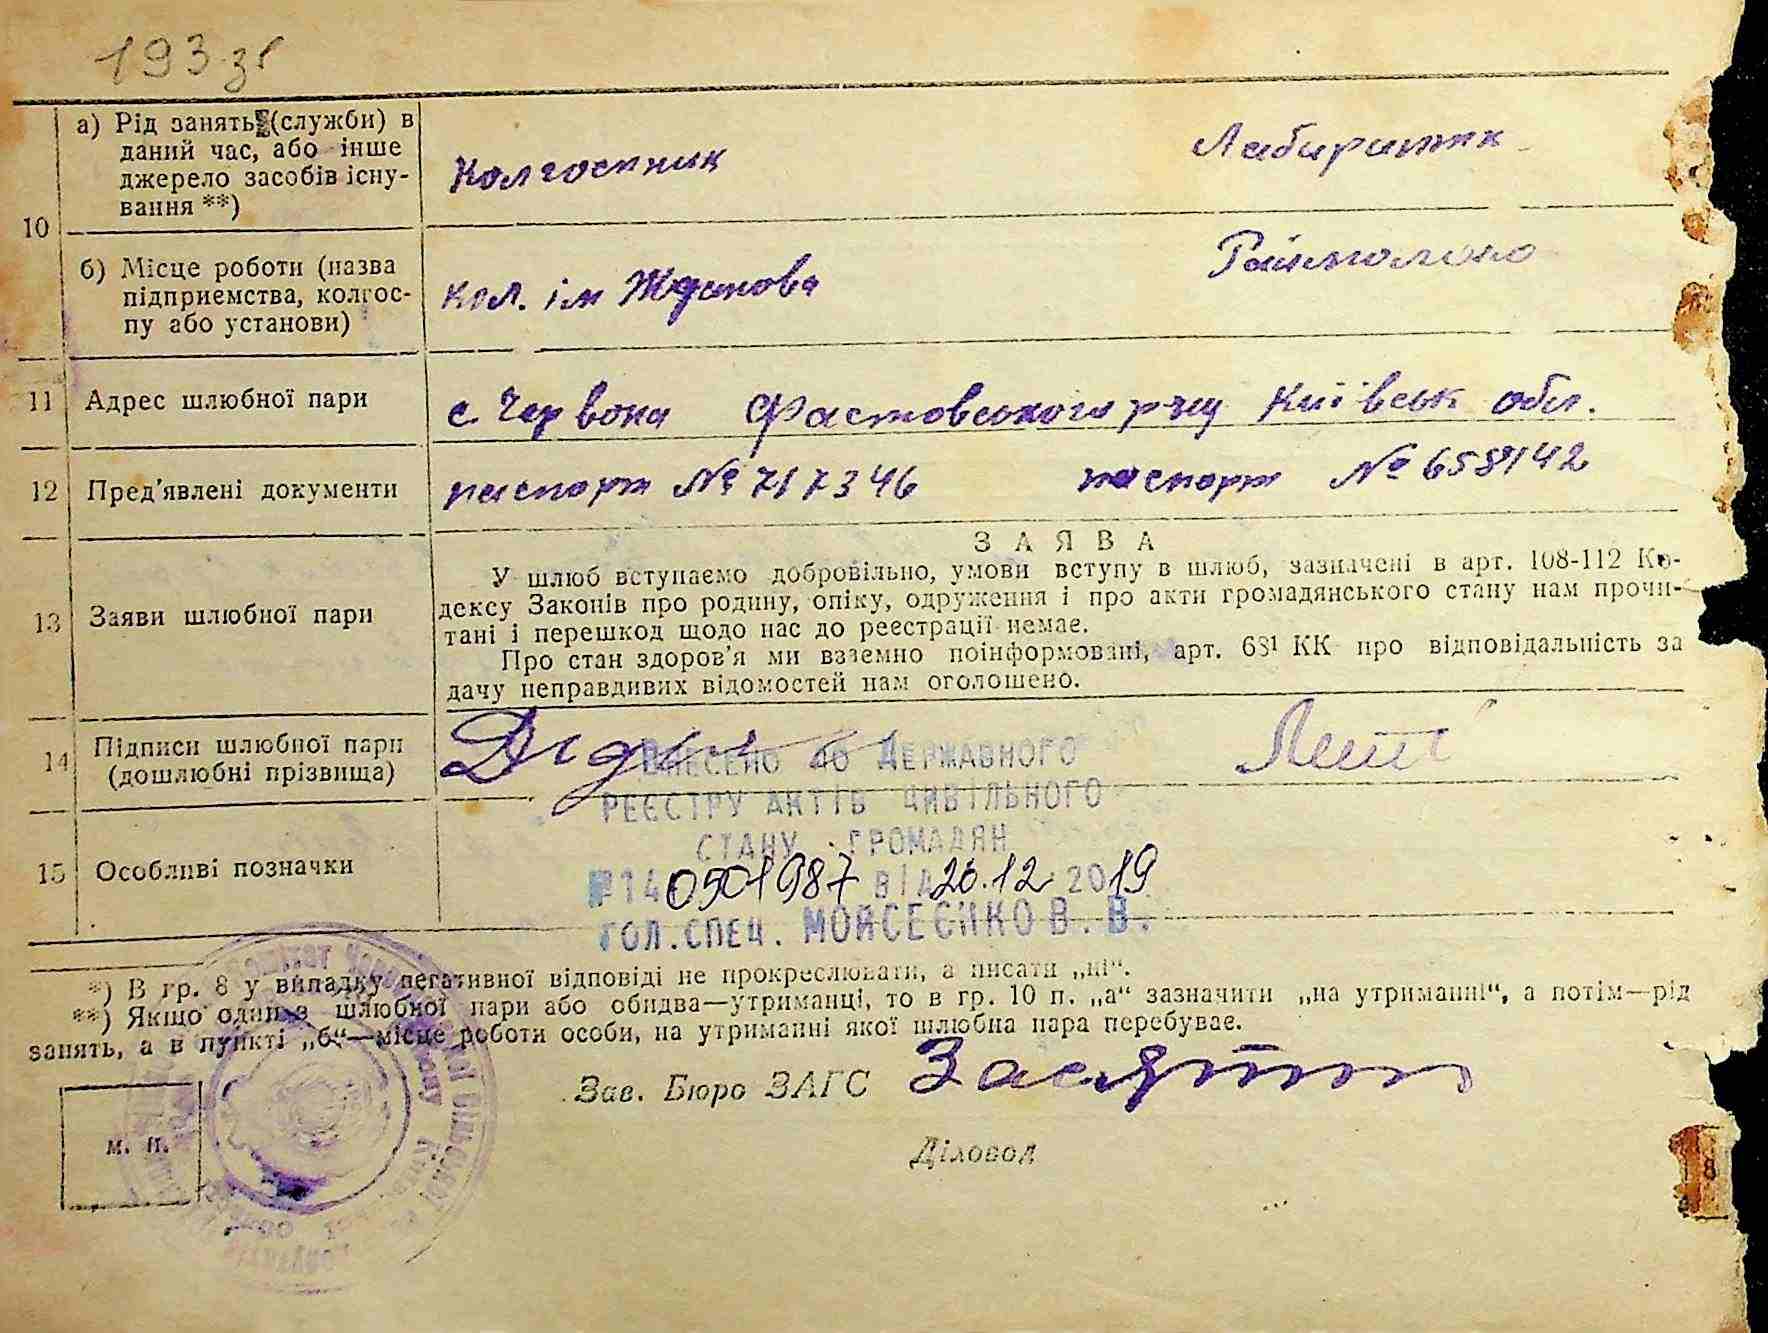 193 зг
а) Рід занять (служби) в
даний час, або інше
джерело засобів існу-
вання **)
Колгоспник
Лабирантка
10
б) Місце роботи (назва
підприємства, колгос-
пу або установи)
Кол. ім Жданова
Раймолоко
11 Адрес шлюбної пари
с. Червона Фастовського р-ну Київськ обл.
12 Пред'явлені документи
паспорт № 717346 паспорт № 658142
13 Заяви шлюбної пари
ЗАЯВА
У шлюб вступаємо добровільно, умови вступу в шлюб, зазначені в арт. 108-112 Ко-
дексу Законів про родину, опіку, одруження і про акти громадянського стану нам прочи-
тані і перешкод щодо нас до реєстрації немає.
Про стан здоров'я ми взаємно поінформовані, арт. 68¹ КК про відповідальність за
дачу неправдивих відомостей нам оголошено.
14 Підписи шлюбної пари
(дошлюбні прізвища)
ВНЕСЕНО ДО ДЕРЖАВНОГО
РЕЄСТРУ АКТІВ ЦИВІЛЬНОГО
СТАНУ ГРОМАДЯН
15 Особливі позначки
№ 140501987 від 26.12 2019
ГОЛ. СПЕЦ. МОЙСЕЄНКО В. В.
*) В гр. 8 у випадку негативної відповіді не прокреслювати, а писати „ні“.
**) Якщо один з шлюбної пари або обидва—утриманці, то в гр. 10 п. „а“ зазначити „на утриманні“, а потім—рід
занять, а в пункті „б“—місце роботи особи, на утриманні якої шлюбна пара перебуває.
Зав. Бюро ЗАГС
м. п.
Діловод
8